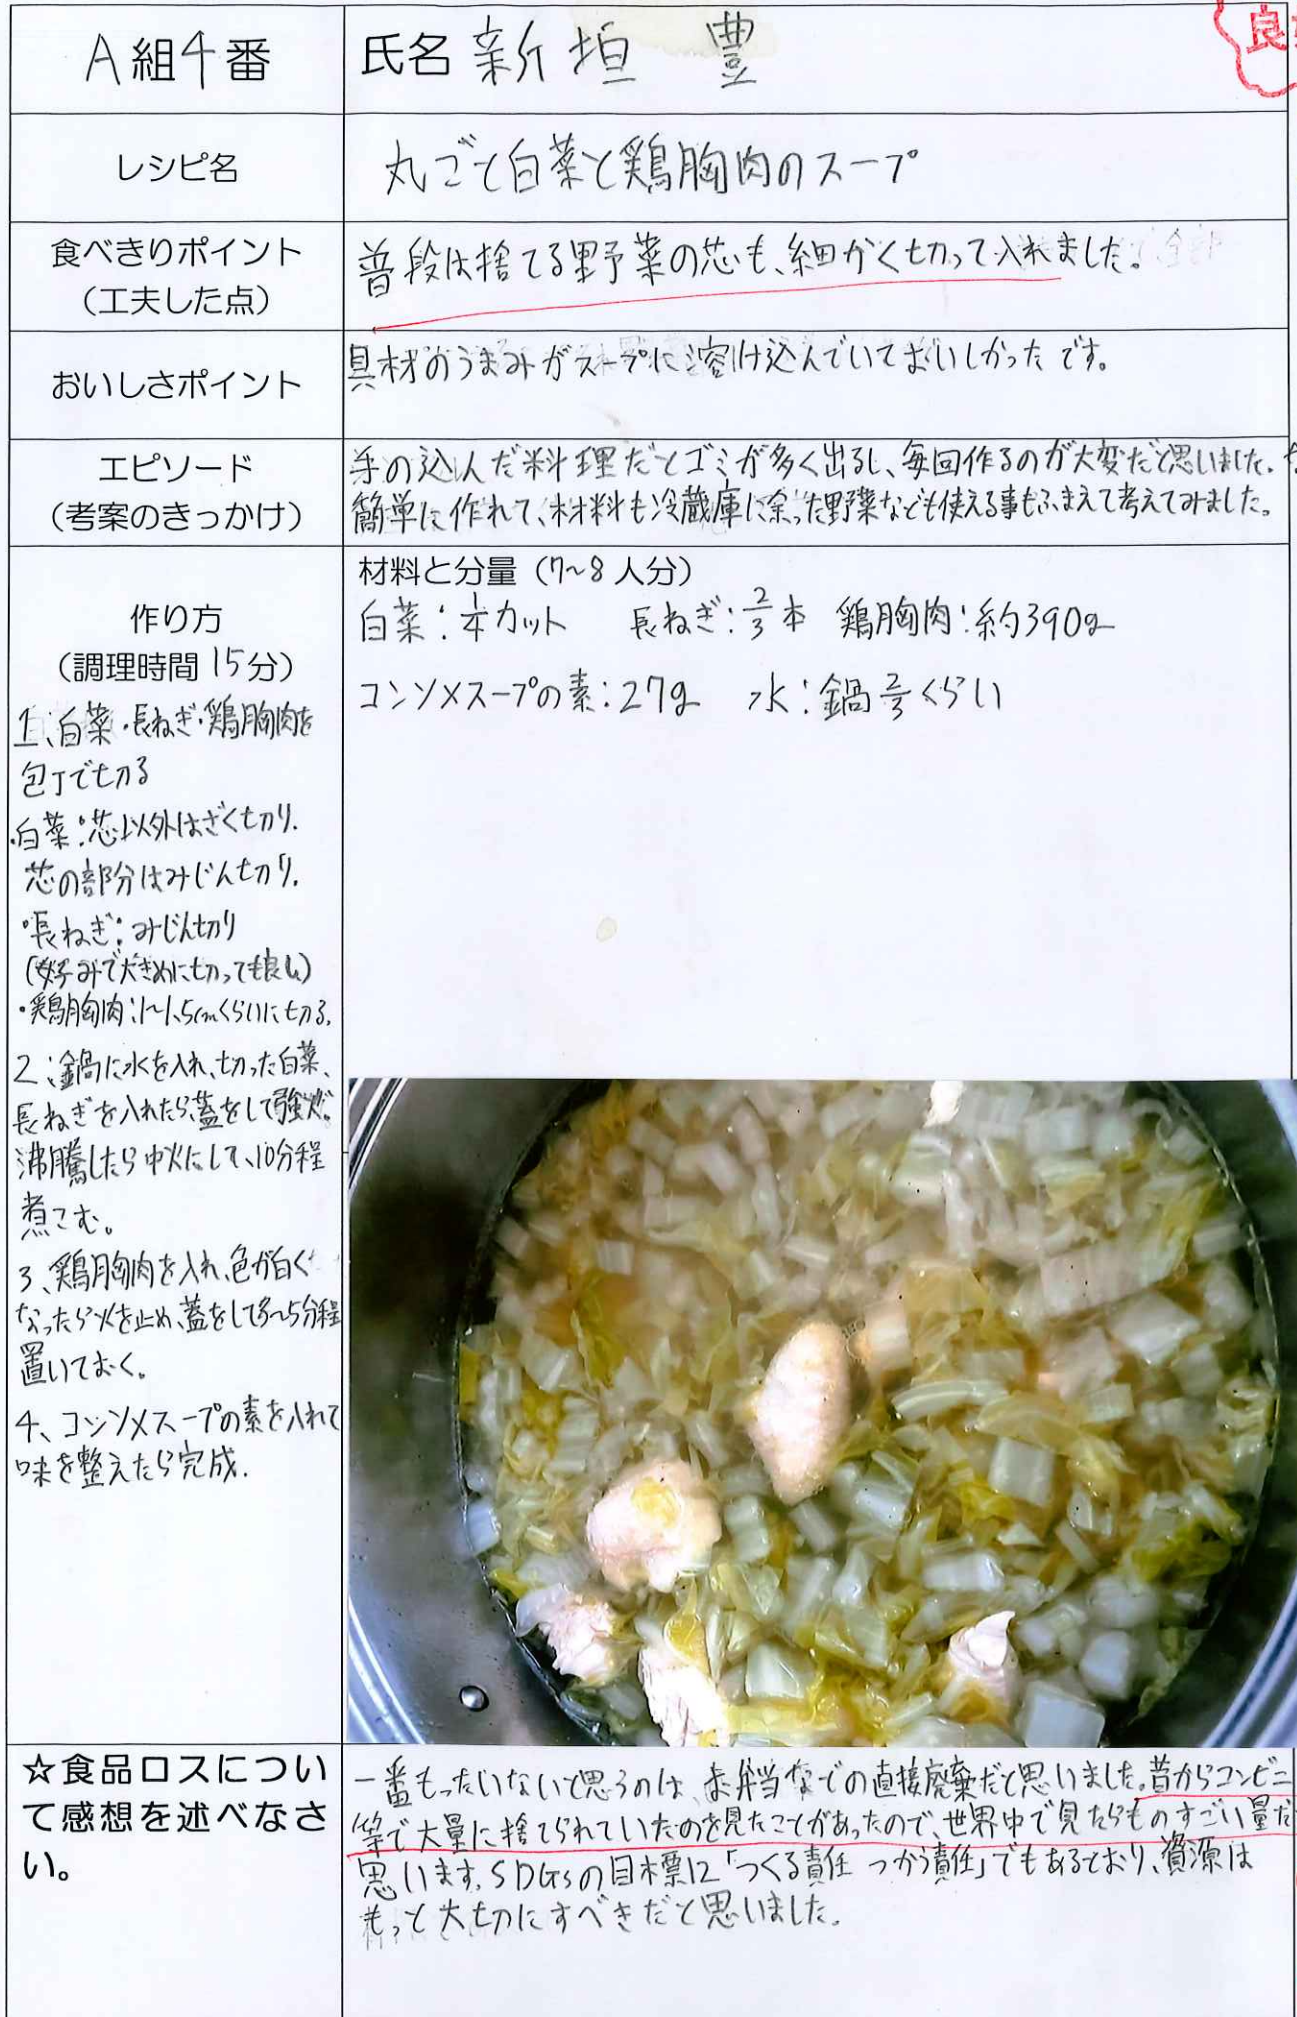 A組4番
氏名 新垣 豊
良
レシピ名
丸ごと白菜と鶏胸肉のスープ
食べきりポイント
(工夫した点)
普段は捨てる野菜の芯も、細かく切って入れました。
おいしさポイント
具材のうまみがスープに溶け込んでいておいしかったです。
エピソード
(考案のきっかけ)
手の込んだ料理だとゴミが多く出るし、毎回作るのが大変だと思いました。
簡単に作れて、材料も冷蔵庫に余った野菜なども使える事もふまえて考えてみました。
作り方
(調理時間 15分)
1、白菜・長ねぎ・鶏胸肉を
包丁で切る
・白菜:芯以外はざく切り.
芯の部分はみじん切り.
・長ねぎ:みじん切り
(好みで大きめに切っても良い)
・鶏胸肉:1〜1.5cmくらいに切る.
2、鍋に水を入れ、切った白菜、
長ねぎを入れたら、蓋をして強火。
沸騰したら中火にして、10分程
煮こむ。
3、鶏胸肉を入れ、色が白く
なったら火を止め、蓋をして3〜5分程
置いておく。
4、コンソメスープの素を入れて
味を整えたら完成.
材料と分量 (7〜8人分)
白菜:1/4カット 長ねぎ:2/3本 鶏胸肉:約390g
コンソメスープの素:27g 水:鍋2/3くらい
☆食品ロスについ
て感想を述べなさ
い。
一番もったいないと思うのは、お弁当などの直接廃棄だと思いました。昔からコンビニ
等で大量に捨てられていたのを見たことがあったので、世界中で見たらものすごい量だ
思います。SDGsの目標に「つくる責任 つかう責任」でもあるとおり、資源は
もっと大切にすべきだと思いました。